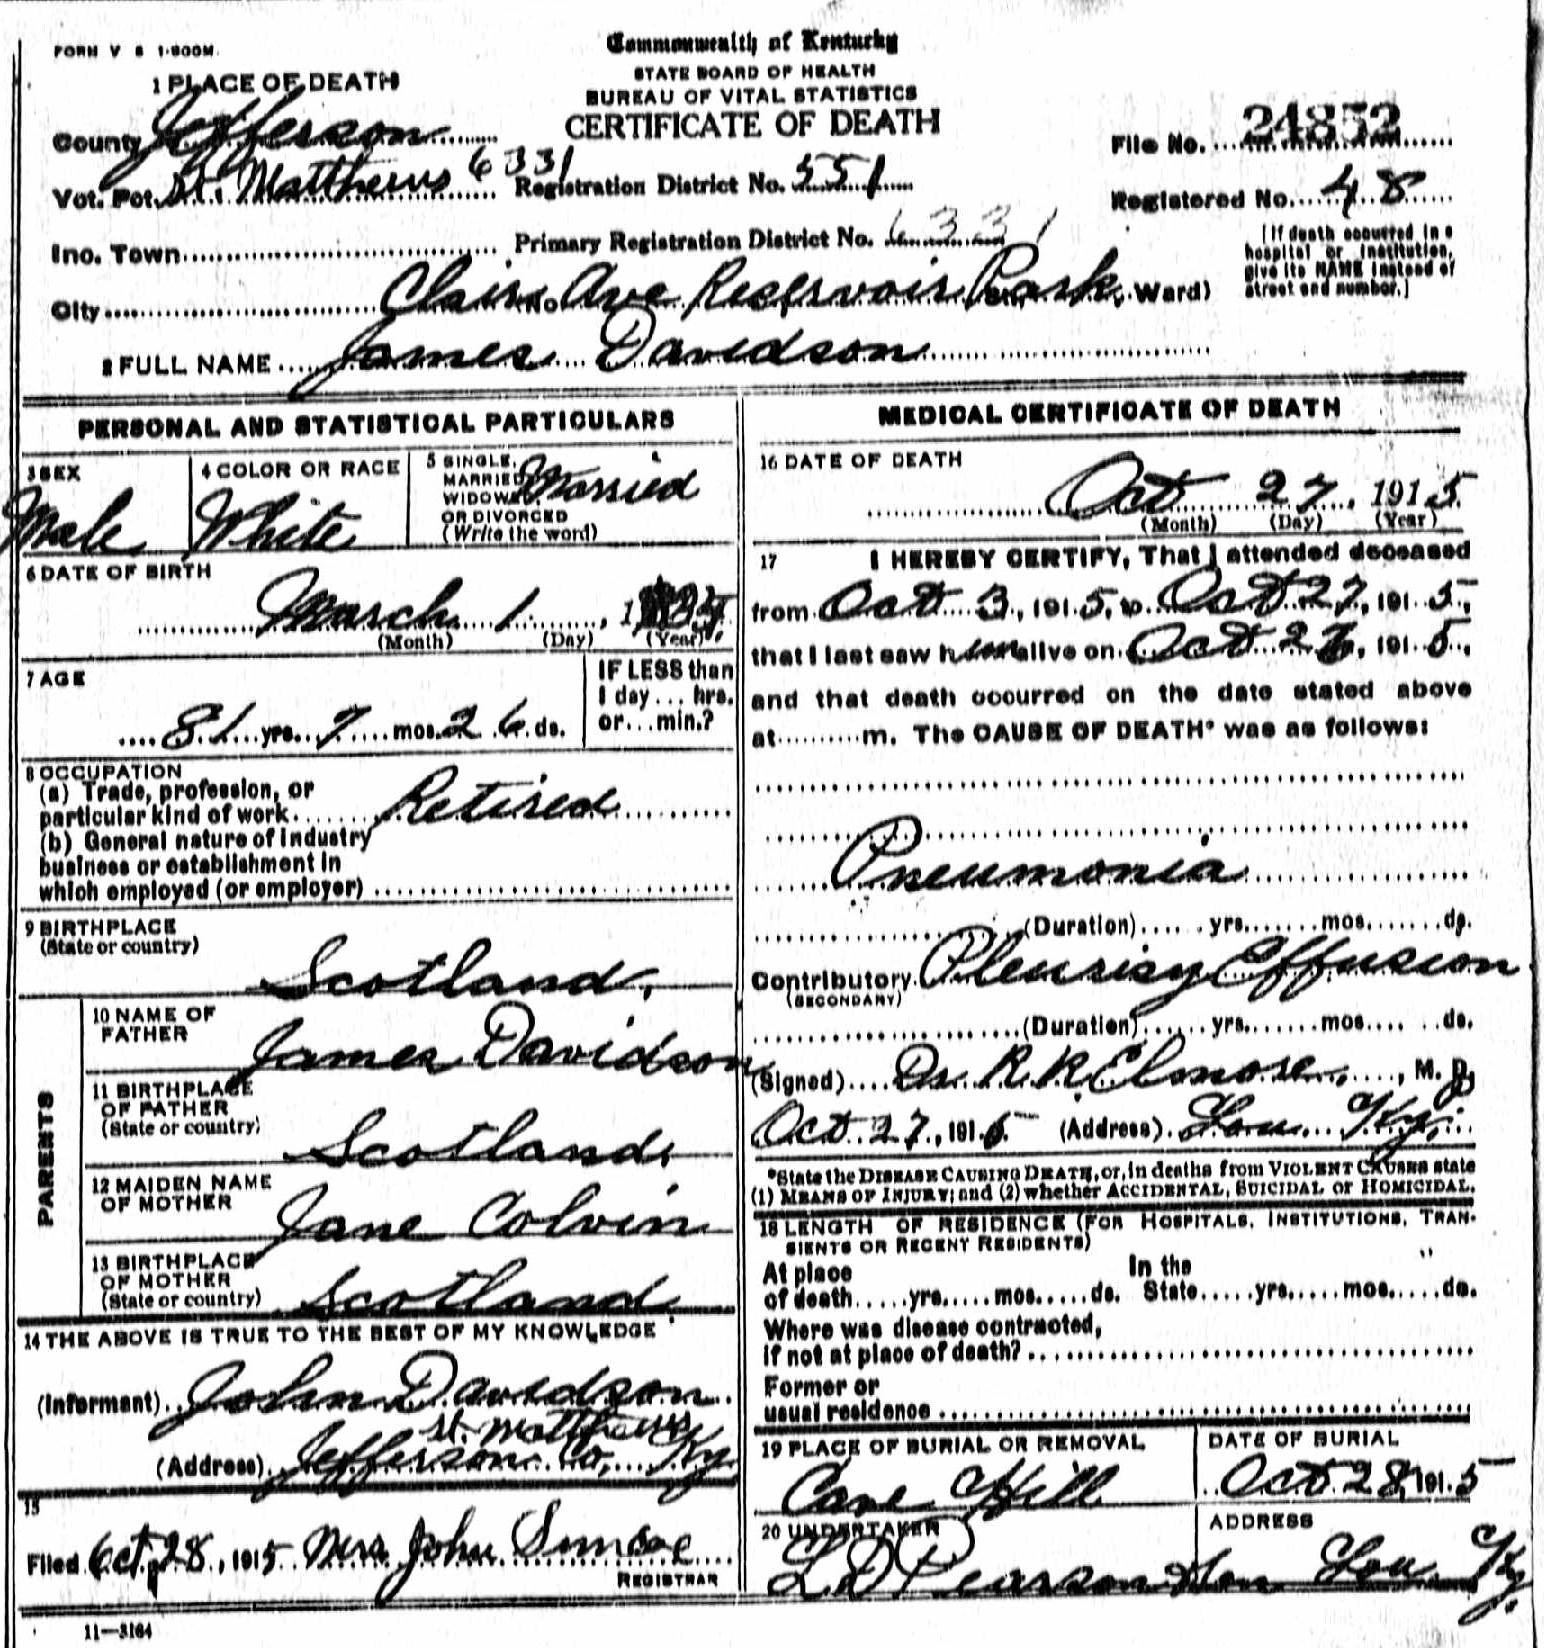 FORM V S 1-500M.
Commonwealth of Kentucky
STATE BOARD OF HEALTH
BUREAU OF VITAL STATISTICS
CERTIFICATE OF DEATH
1 PLACE OF DEATH
County Jefferson
Vot. Pct. St. Matthews 6331
Registration District No. 551
Inc. Town
Primary Registration District No. 6331
File No. 24852
Registered No. 48
City Clair No. Ave Reservoir Park St., Ward)
(If death occurred in a
hospital or institution,
give its NAME instead of
street and number.)
2 FULL NAME James Davidson
PERSONAL AND STATISTICAL PARTICULARS
3 SEX
Male
4 COLOR OR RACE
White
5 SINGLE,
MARRIED,
WIDOWED
OR DIVORCED
(Write the word)
Married
6 DATE OF BIRTH
March 1, 1
(Month) (Day) (Year)
7 AGE
81 yrs. 7 mos. 26 ds.
IF LESS than
1 day... hrs.
or...min.?
8 OCCUPATION
(a) Trade, profession, or
particular kind of work Retired
(b) General nature of industry
business or establishment in
which employed (or employer)
9 BIRTHPLACE
(State or country)
Scotland.
PARENTS
10 NAME OF
FATHER
James Davidson
11 BIRTHPLACE
OF FATHER
(State or country)
Scotland.
12 MAIDEN NAME
OF MOTHER
Jane Colvin
13 BIRTHPLACE
OF MOTHER
(State or country)
Scotland
14 THE ABOVE IS TRUE TO THE BEST OF MY KNOWLEDGE
(Informant) John Davidson
St. Matthews
(Address) Jefferson Co, Ky.
15
Filed Oct 28, 1915 Mrs John Simcoe
REGISTRAR
11—3164
MEDICAL CERTIFICATE OF DEATH
16 DATE OF DEATH
Oct 27, 1915
(Month) (Day) (Year)
17 I HEREBY CERTIFY, That I attended deceased
from Oct 3, 1915, to Oct 27, 1915,
that I last saw him alive on Oct 26, 1915,
and that death occurred on the date stated above
at m. The CAUSE OF DEATH* was as follows:
Pneumonia
(Duration) yrs. mos. ds.
Contributory Pleurisy Effusion
(SECONDARY)
(Duration) yrs. mos. ds.
(Signed) Dr. R.R. Elmore, M. D.
Oct 27, 1915 (Address) Lou. Ky.
*State the DISEASE CAUSING DEATH, or, in deaths from VIOLENT CAUSES state
(1) MEANS OF INJURY; and (2) whether ACCIDENTAL, SUICIDAL or HOMICIDAL.
18 LENGTH OF RESIDENCE (FOR HOSPITALS, INSTITUTIONS, TRAN-
SIENTS OR RECENT RESIDENTS)
At place
of death yrs. mos. ds.
In the
State yrs. mos. ds.
Where was disease contracted,
if not at place of death?
Former or
usual residence
19 PLACE OF BURIAL OR REMOVAL
Cave Hill
DATE OF BURIAL
Oct 28, 1915
20 UNDERTAKER
L D Pearson & Son
ADDRESS
Lou. Ky.